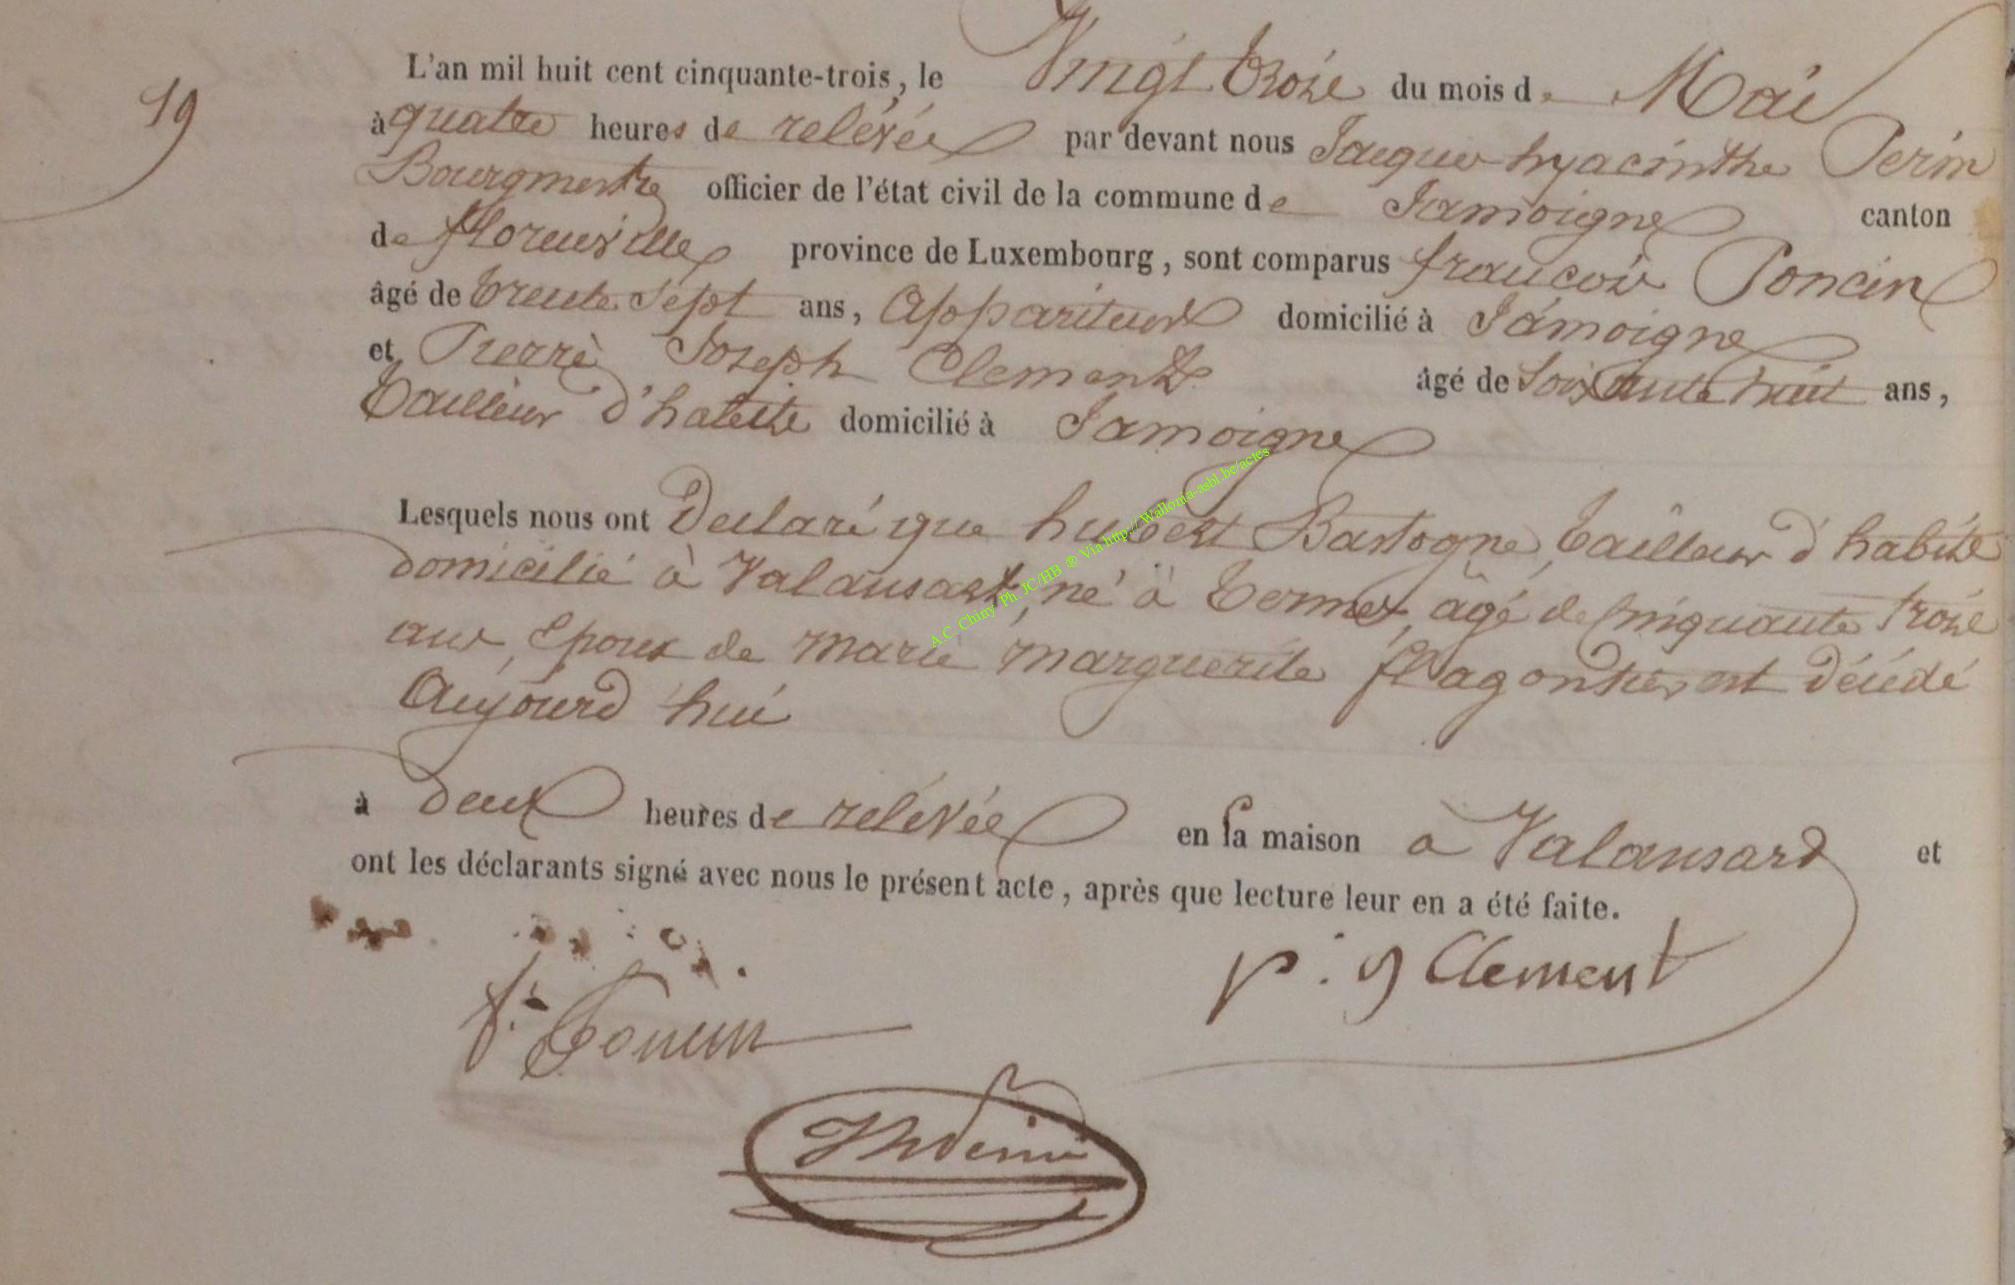 19
L'an mil huit cent cinquante-trois, le Vingt trois du mois de Mai
à quatre heures de relévée par devant nous Jacque hyacinthe Perin
Bourgmestre officier de l'état civil de la commune de Jamoigne canton
de florenville province de Luxembourg, sont comparus francois Poncin
âgé de trente sept ans, Appariteur domicilié à Jamoigne
et Pierre Joseph Clement âgé de soixante huit ans,
tailleur d'habits domicilié à Jamoigne
Lesquels nous ont Declaré que hubert Bastogne, tailleur d'habits
domicilié à Valansart, né à termes, âgé de cinquante trois
ans, Epoux de Marie Marguerite flagontier est décédé
Aujourd'hui
à deux heures de relévée en sa maison à Valansard et
ont les déclarants signé avec nous le présent acte, après que lecture leur en a été faite.
p. j Clement
f. Poncin
JhPerin
A.C. Chiny Ph. JC/HB ® Via http:// Wallonia-asbl.be/actes